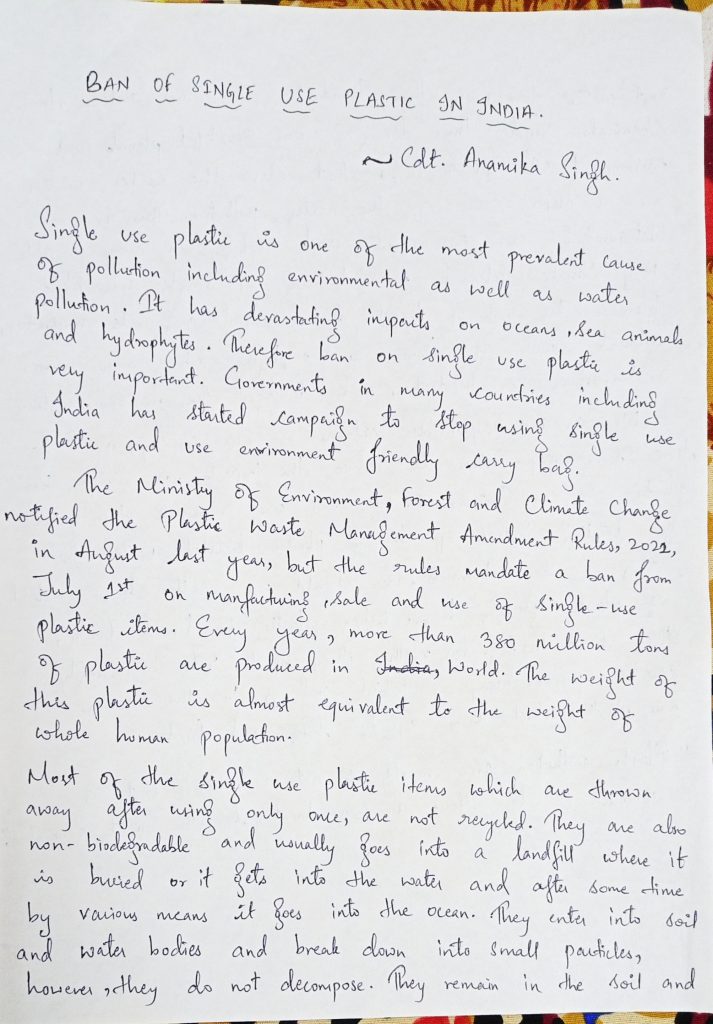 BAN OF SINGLE USE PLASTIC IN INDIA.
~ Cdt. Anamika Singh.
Single use plastic is one of the most prevalent cause
of pollution including environmental as well as water
pollution. It has devastating impacts on oceans, sea animals
and hydrophytes. Therefore ban on single use plastic is
very important. Governments in many countries including
India has started campaign to stop using single use
plastic and use environment friendly carry bag.
The Ministry of Environment, Forest and Climate Change
notified the Plastic Waste Management Amendment Rules, 2021,
in August last year, but the rules mandate a ban from
July 1st on manfactuing, sale and use of single-use
plastic items. Every year, more than 380 million tons
of plastic are produced in India, World. The weight of
this plastic is almost equivalent to the weight of
whole human population.
Most of the single use plastic items which are thrown
away after using only once, are not recycled. They are also
non-biodegradable and usually goes into a landfill where it
is buried or it gets into the water and after some time
by various means it goes into the ocean. They enter into soil
and water bodies and break down into small particles,
however, they do not decompose. They remain in the soil and